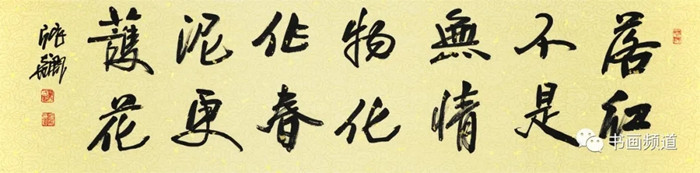 落紅
不是
無情
物化
作春
泥更
護花
书画频道